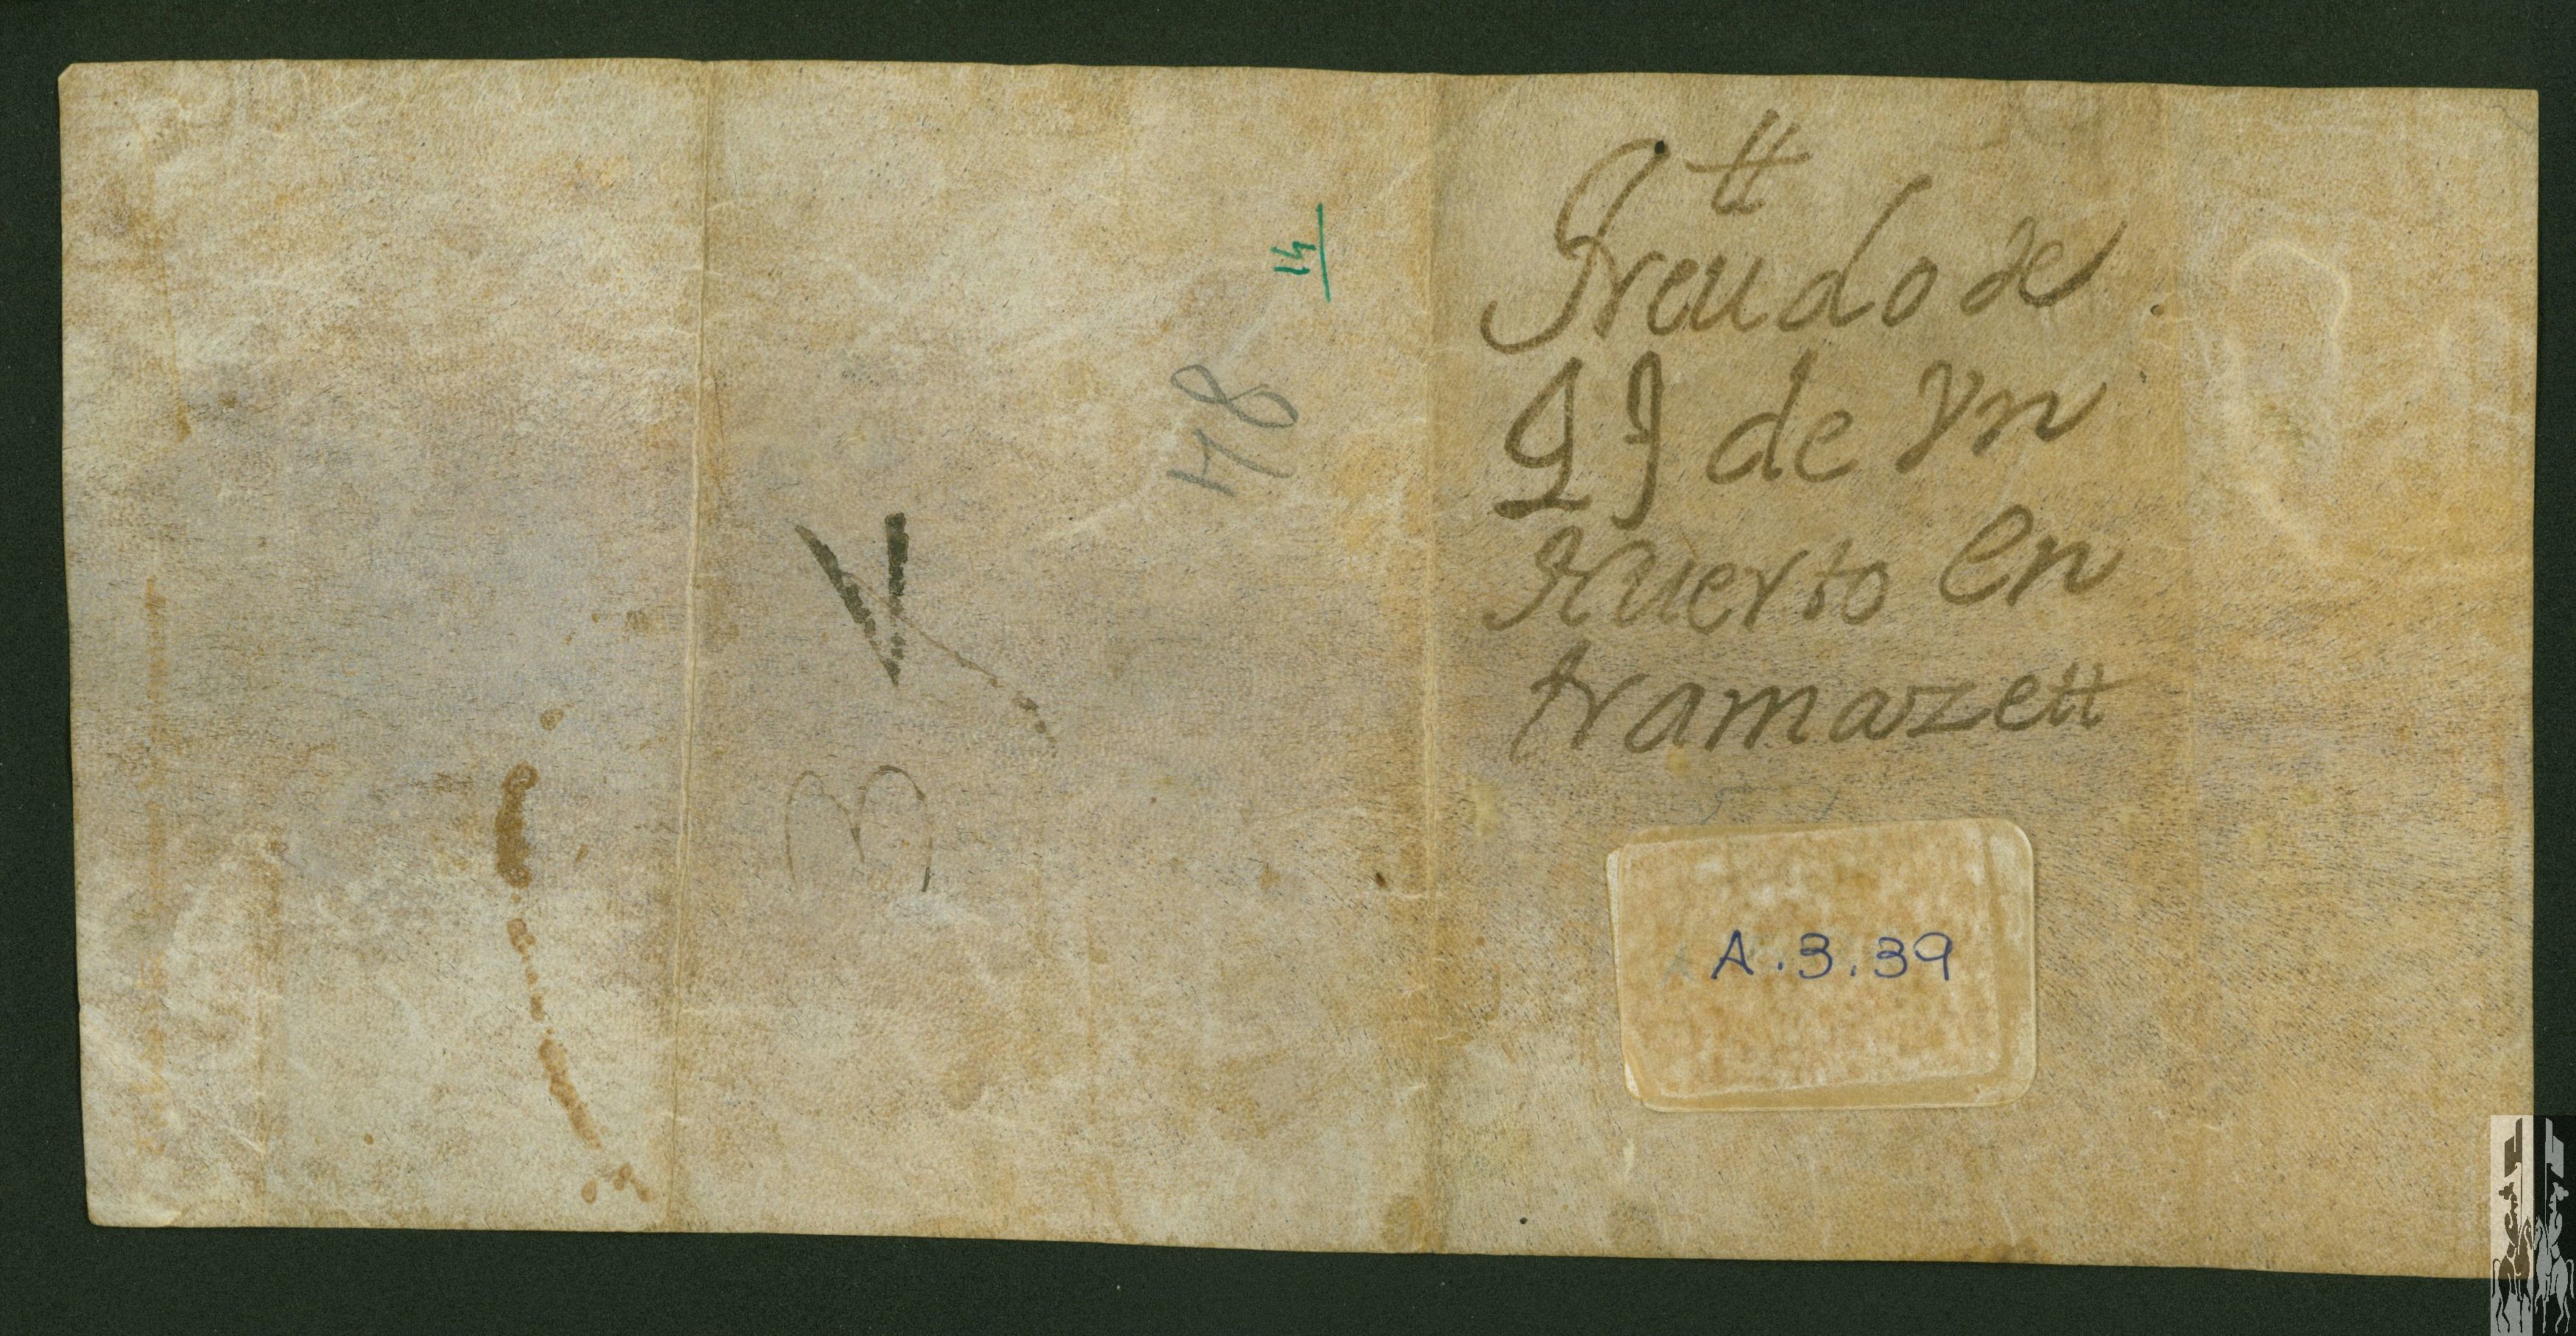 tt
Treudo de
de vn
Huerto en
tramazett
A.3.39
48
14
3